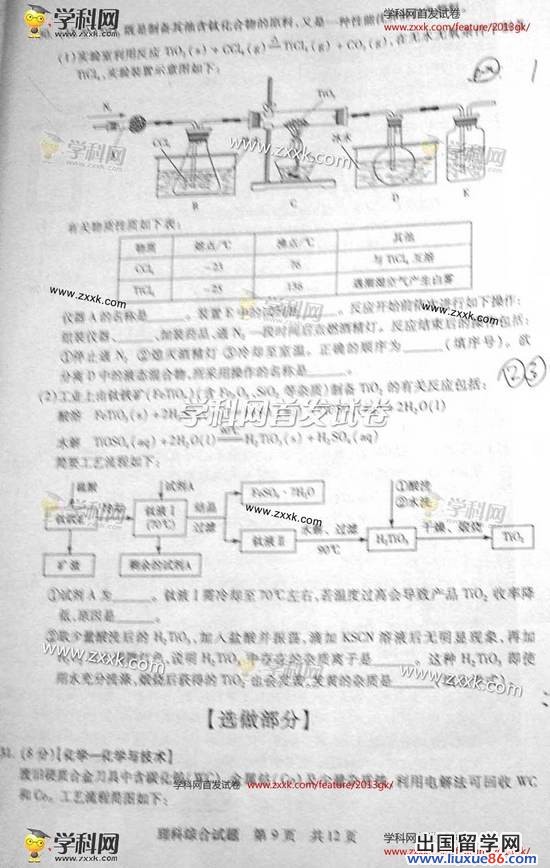 学科网
www.zxxk.com
学科网首发试卷
http://www.zxxk.com/feature/2013gk/
既是制备其他含钛化合物的原料,又是一种性能
(1)实验室利用反应 TiO₂(s)+CCl₄(g) △ TiCl₄(g)+CO₂(g),在无水无氧
TiCl₄,实验装置示意图如下:
N₂
TiO₂
CCl₄
冰水
B
C
D
E
学科网
www.zxxk.com
有关物质性质如下表:
物质 熔点/℃ 沸点/℃ 其他
CCl₄ -23 76 与TiCl₄互溶
TiCl₄ -25 136 遇潮湿空气产生白雾
www.zxxk.com
仪器A的名称是______。装置E中的______。反应开始前依次进行如下操作:
组装仪器、______、加装药品、通N₂一段时间后点燃酒精灯。反应结束后的操作包括:
①停止通N₂ ②熄灭酒精灯 ③冷却至室温。正确的顺序为______(填序号)。欲
分离D中的液态混合物,所采用操作的名称是______。
(2)工业上由钛铁矿(FeTiO₃)(含Fe₂O₃、SiO₂等杂质)制备TiO₂的有关反应包括:
酸溶 FeTiO₃(s)+2H₂
2H₂O(l)
学科网首发试卷
水解 TiOSO₄(aq)+2H₂O(l) 90℃ H₂TiO₃(s)+H₂SO₄(aq)
简要工艺流程如下:
硫酸
试剂A
①酸洗
②水洗
钛铁矿
钛液Ⅰ
(70℃)
结晶
过滤
FeSO₄·7H₂O
钛液Ⅱ
水解、过滤
90℃
H₂TiO₃
干燥、煅烧
TiO₂
矿渣
剩余的试剂A
①试剂A为______。钛液Ⅰ需冷却至70℃左右,若温度过高会导致产品TiO₂收率降
低,原因是______。
②取少量酸洗后的H₂TiO₃,加入盐酸并振荡,滴加KSCN溶液后无明显现象,再加
微红色,说明H₂TiO₃中存在的杂质离子是______。这种H₂TiO₃即使
用水充分洗涤,煅烧后获得的TiO₂也会发黄,发黄的杂质是______
【选做部分】
31.(8分)【化学—化学与技术】
废旧硬质合金刀具中含碳化钨(WC)、金属钴(Co)及少量杂质铁,利用电解法可回收WC
和Co。工艺流程简图如下:
理科综合试题 第9页 共12页
学科网首发试卷
http://www.zxxk.com/feature/2013gk/
出国留学网
www.liuxue86.com